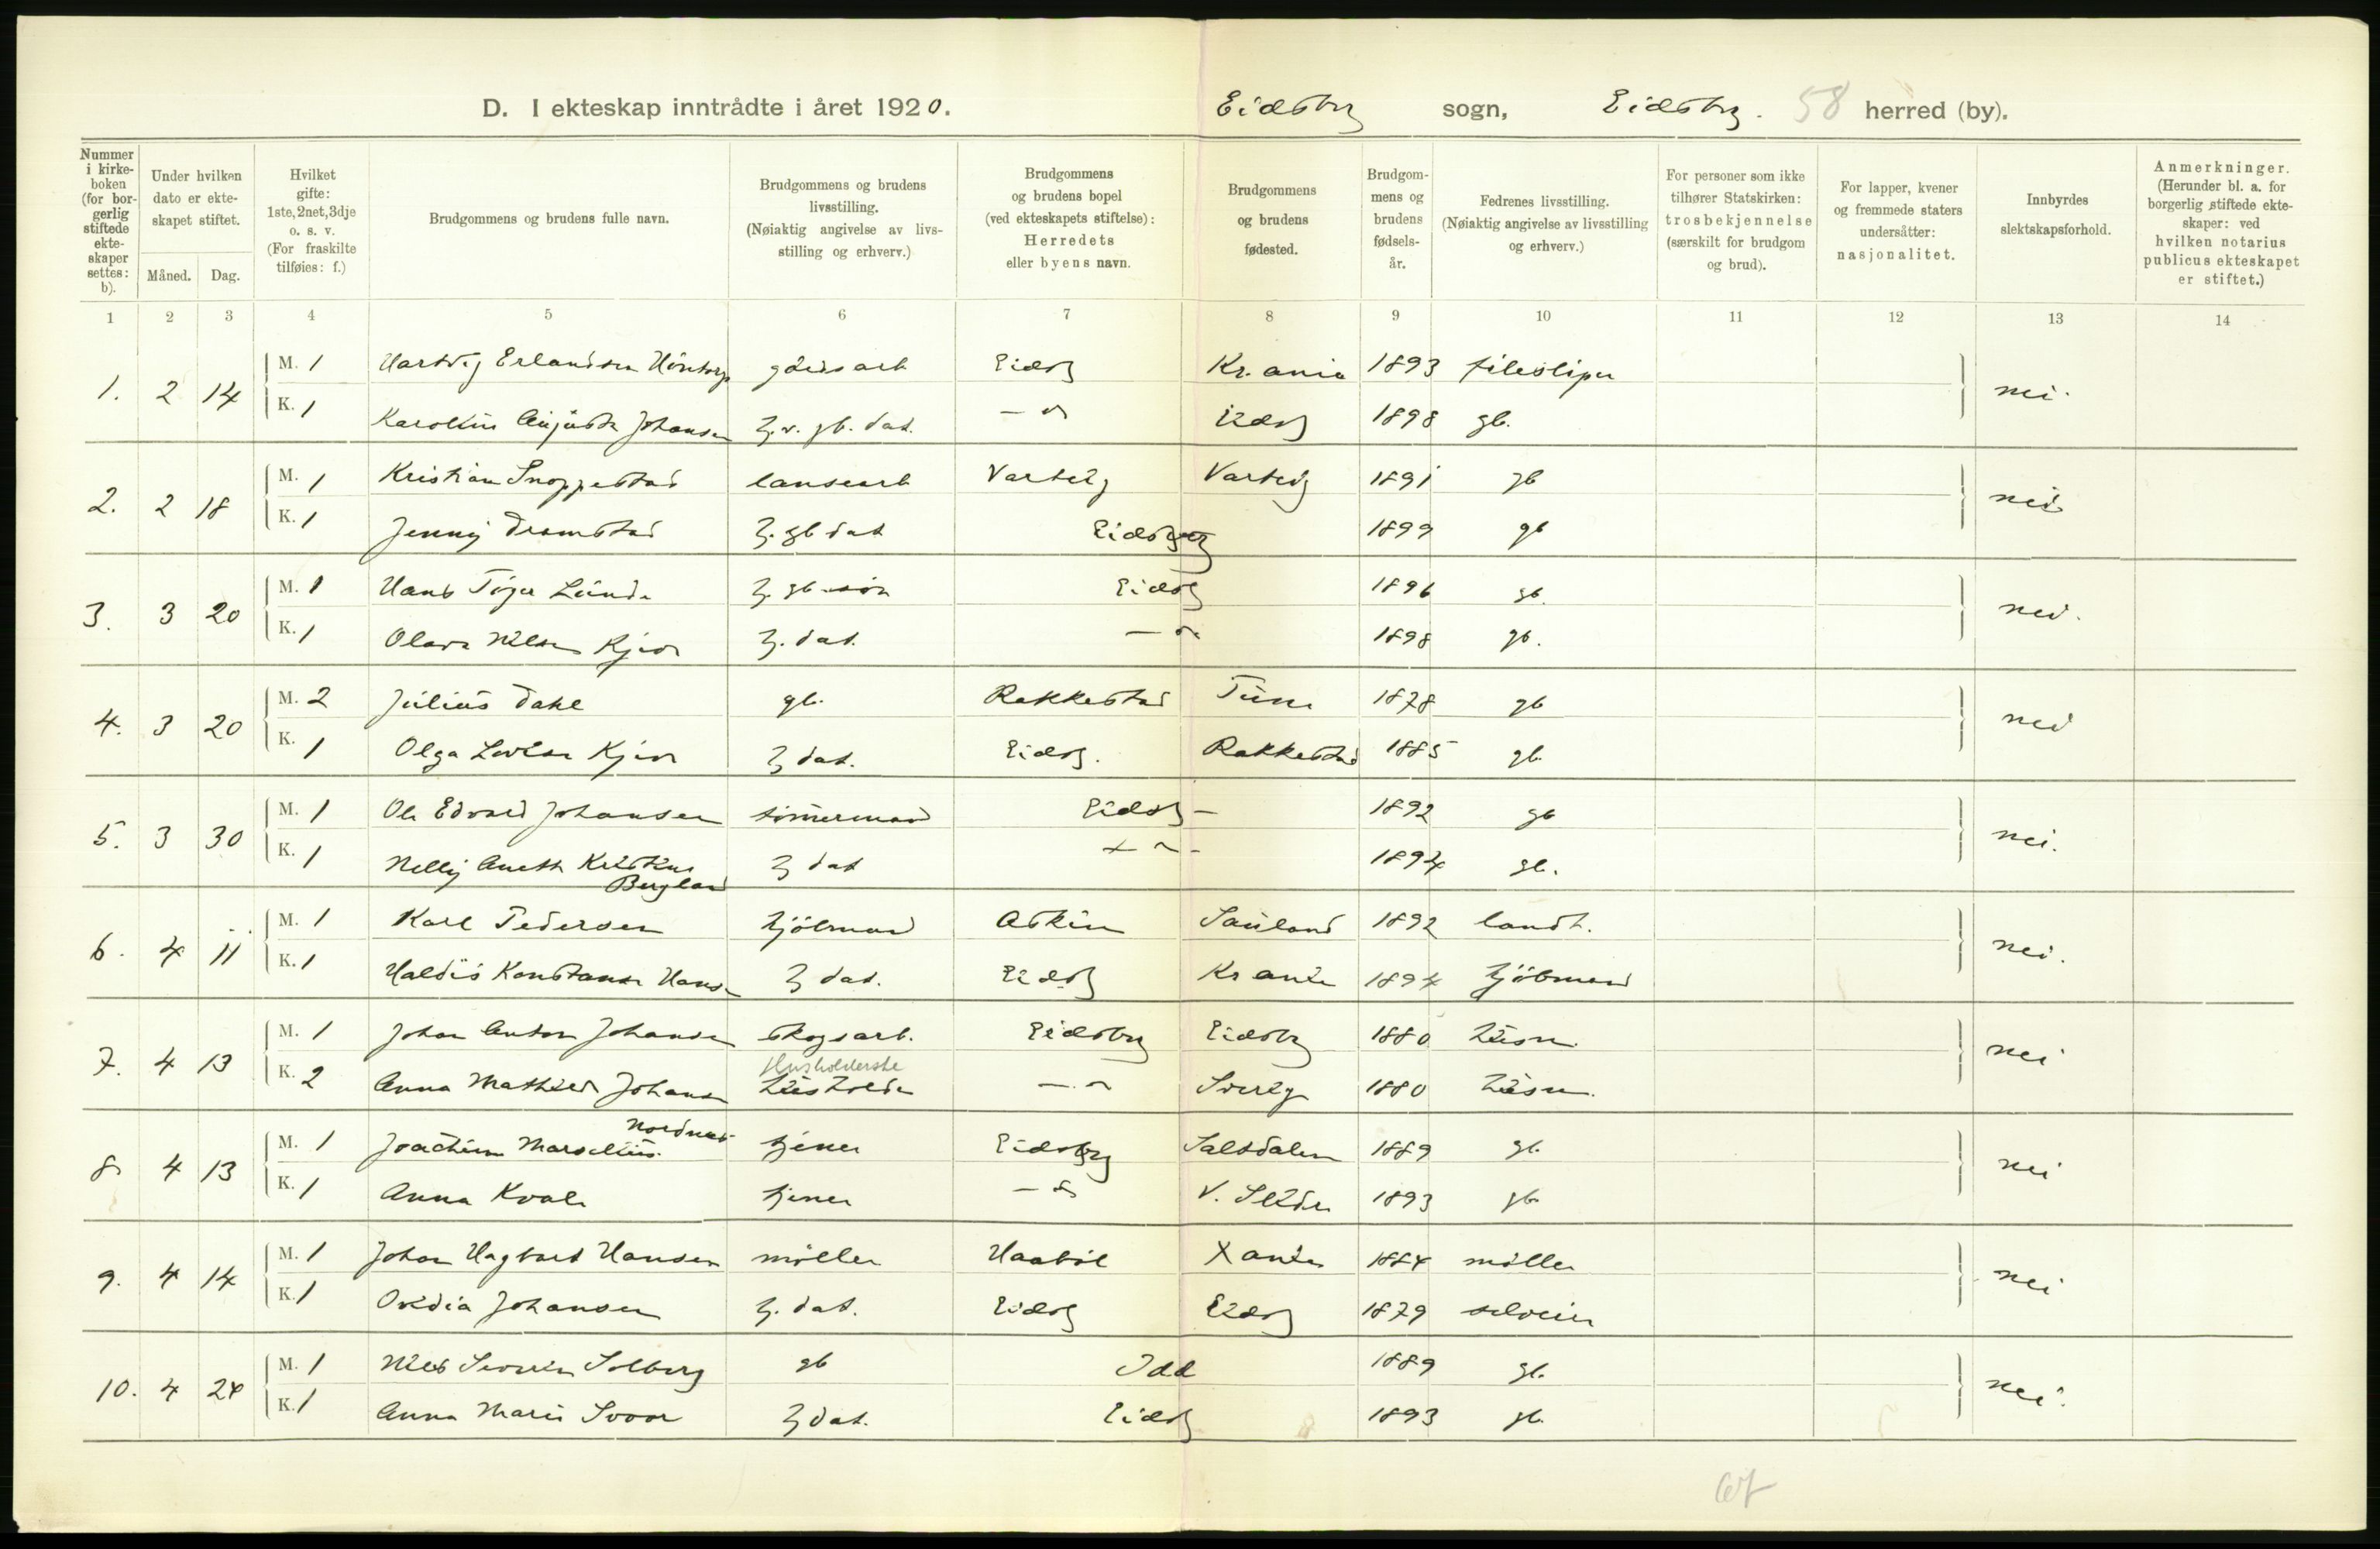 D. I ekteskap inntrådte i året 1920. Eidsbrg sogn, Eidsbrg. 58 herred (by).
Nummer i kirke-boken (for bor-gerlig stiftede ekte-skaper settes: b).
Under hvilken dato er ekte-skapet stiftet.
Måned. Dag.
Hvilket gifte: 1ste, 2net, 3dje o. s. v. (For fraskilte tilføies: f.)
Brudgommens og brudens fulle navn.
Brudgommens og brudens livsstilling. (Nøiaktig angivelse av livs-stilling og erhverv.)
Brudgommens og brudens bopel (ved ekteskapets stiftelse): Herredets eller byens navn.
Brudgommens og brudens fødested.
Brudgom-mens og brudens fødsels-år.
Fedrenes livsstilling. (Nøiaktig angivelse av livsstilling og erhverv.)
For personer som ikke tilhører Statskirken: trosbekjennelse (særskilt for brudgom og brud).
For lapper, kvener og fremmede staters undersåtter: nasjonalitet.
Innbyrdes slektskapsforhold.
Anmerkninger. (Herunder bl. a. for borgerlig stiftede ekte-skaper: ved hvilken notarius publicus ekteskapet er stiftet.)
1 2 3 4 5 6 7 8 9 10 11 12 13 14
1. 2 14 M. 1 Hartvig Erlandsen gårdsarb Eidsbg Kr. ania 1893 filesliper nei.
K. 1 Karoline Augusta Johansen hj. v. gb. dat. — " Eidsbg 1898 gb.
2. 2 18 M. 1 Kristian Snoppestad Varteig Varteig 1891 gb nei
K. 1 Jenny Dramstad hj. gb dat Eidsberg 1899 gb
3. 3 20 M. 1 Hans Lunde hj. gb. søn Eidsbg 1896 gb. nei.
K. 1 Olava Nilsen Kjær hj. dat. — " 1898 gb.
4. 3 20 M. 2 Julius Dahl gb. Rakkestad Tune 1878 gb nei
K. 1 Olga Lovise Kjær hj dat. Eidsbg. Rakkestad 1885 gb.
5. 3 30 M. 1 Ole Edvard Johansen tømmermand Eidsbg — 1892 gb nei.
K. 1 Nelly Anette Kristine Bergland hj dat — " — 1894 gb.
6. 4 11 M. 1 Karl Pedersen hjólmand Askim Sauland 1892 landh. nei.
K. 1 Haldis Konstanse Hansen hj dat. Eidsbg Kr ania 1894 hjólmand
7. 4 13 M. 1 Johan Anton Johansen skogsarb. Eidsbrg Eidsbrg 1880 husm. nei
Husholderske
K. 2 Anna Mathilde Johansen husholder — " Sverig 1880 husm.
8. 4 13 M. 1 Joachim Marselius Nordnes tjener Eidsbrg Saltdalen 1889 gb. nei
K. 1 Anna Kvale tjener — " V. Slidre 1893 gb.
9. 4 14 M. 1 Johan Hagbart Hansen møller Haabøl X ania 1884 møller nei
K. 1 Ovidia Johansen hj. dat. Eidsbg Eidsbg 1879 selveier
10. 4 24 M. 1 Nils Severin Solberg gb Idd 1889 gb. nei.
K. 1 Anna Marie Svoor hj dat. Eidsbg 1893 gb.